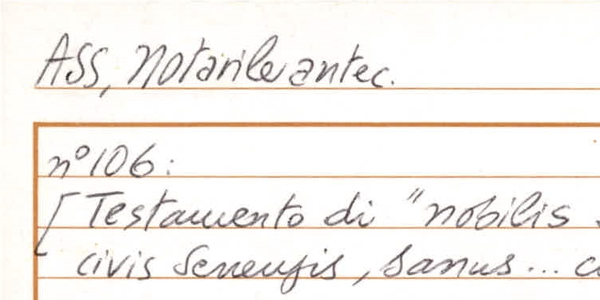 ASS, Notarile antec.
n° 106:
[Testamento di "nobilis
civis Senensis, sanus...